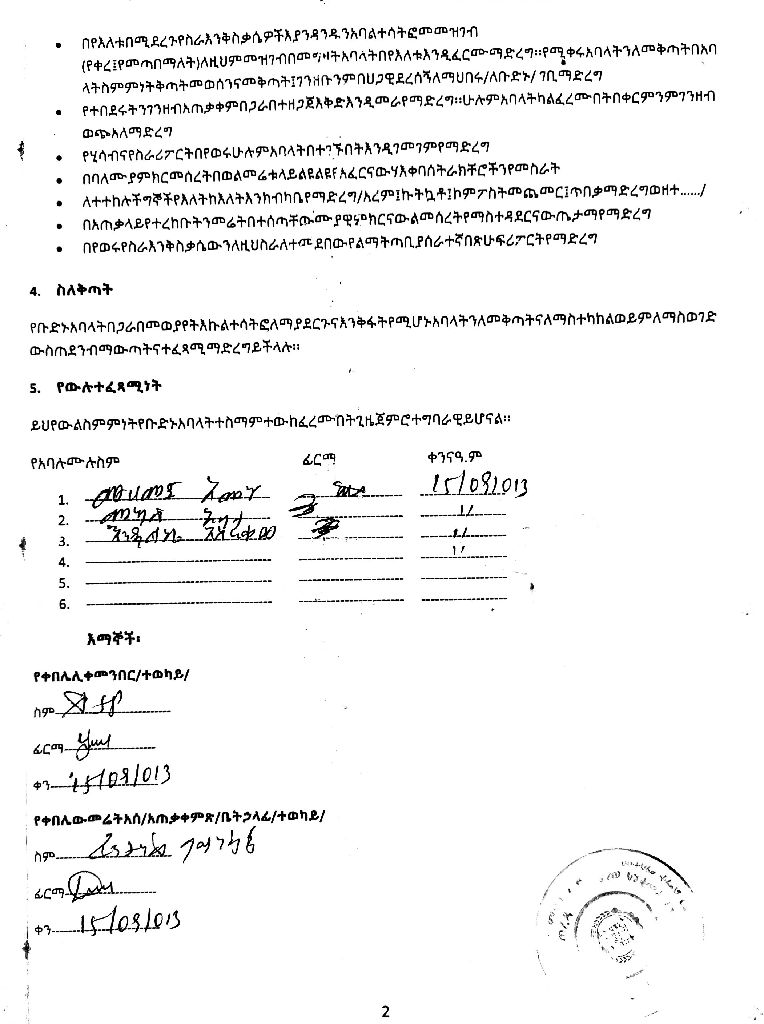 በየእለቱበሚደረጉየስራእንቅስቃሴዎችእያንዳንዱንአባልተሳትፎመመዝገብ
(የቀረ፤የመጣበማለት)ለዚህምመዝገብበመግዛትአባላትበየእለቱእንዲፈርሙማድረግ።የሚቀሩአባላትንለመቅጣትበአባ
ላትስምምነትቅጣትመወሰንናመቅጣት፤ገንዘቡንምበሀጋዊደረሰኝለማህበሩ/ለቡድኑ/ ገቢማድረግ
የተበደሩትንገንዘብአጠቃቀምበጋራበተዘጋጀእቅድእንዲመራየማድረግ።ሁሉምአባላትካልፈረሙበትበቀርምንምገንዘብ
ወጭአለማድረግ
የሂሳብናየስራሪፖርትበየወሩሁሉምአባላትበተገኙበትእንዲገመገምየማድረግ
በባለሙያምክርመሰረትበወልመሬቱላይልዩልዩየአፈርናውሃእቀባስትራክቸሮችንየመስራት
ለተተከሉችግኞችየእለትከእለትእንክብካቤየማድረግ/አረም፤ኩትኳቶ፤ኮምፖስትመጨመር፤ጥበቃማድረግወዘተ....../
በአጠቃላይየተረከቡትንመሬትበተሰጣቸውሙያዊምክርናውልመሰረትየማስተዳደርናውጤታማየማድረግ
በየወሩየስራእንቅስቃሴውንለዚህስራለተመደበውየልማትጣቢያሰራተኛበጽሁፍሪፖርትየማድረግ
4. ስለቅጣት
የቡድኑአባላትበጋራበመወያየትእኩልተሳትፎለማያደርጉናእንቅፋትየሚሆኑአባላትንለመቅጣትናለማስተካከልወይምለማስወገድ
ውስጠደንብማውጣትናተፈጻሚማድረግይችላሉ።
5. የውሉተፈጻሚነት
ይህየውልስምምነትየቡድኑአባላትተስማምተውከፈረሙበትጊዜጀምሮተግባራዊይሆናል።
የአባሉሙሉስም ፊርማ ቀንናዓ.ም
1. መሀመድ አመዛ 15/09/013
2. 〃
3. 〃
4. 〃
5.
6.
እማኞች፡
የቀበሌሊቀመንበር/ተወካይ/
ስም
ፊርማ
ቀን 15/09/013
የቀበሌውመሬትአስ/አጠቃቀምጽ/ቤትኃላፊ/ተወካይ/
ስም
ፊርማ
ቀን 15/09/013
2